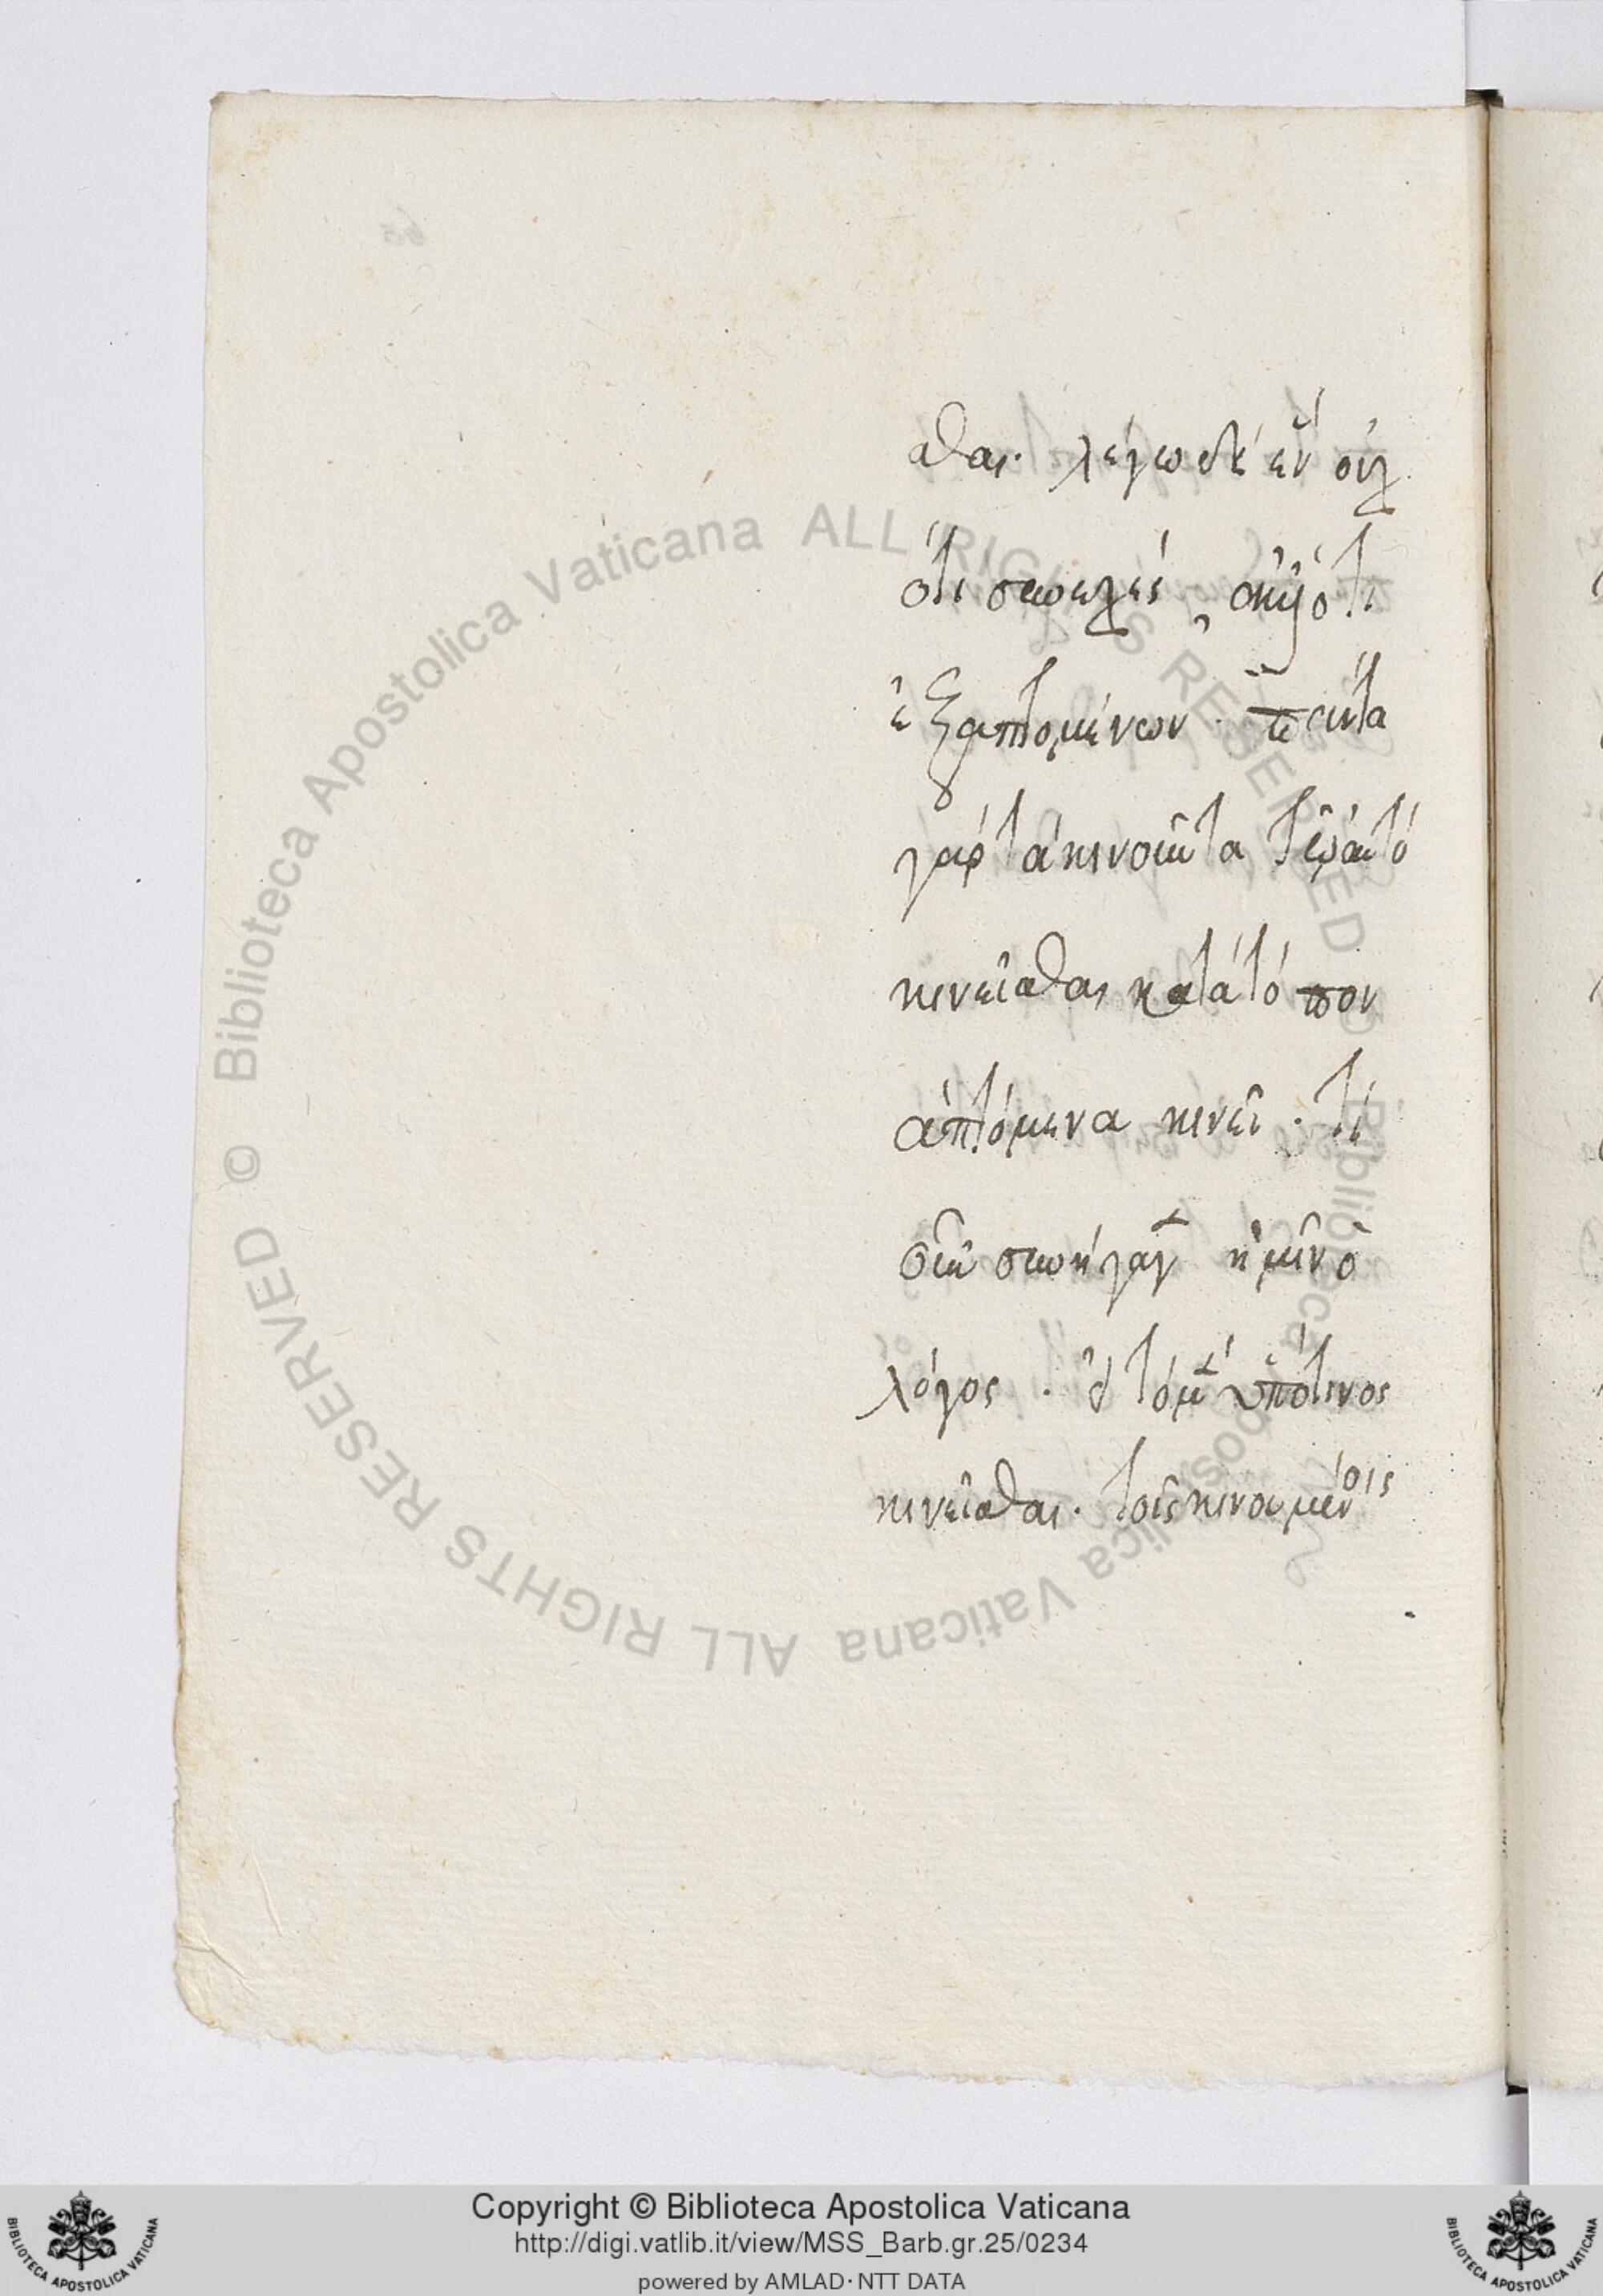 σθαι. λέγω δὲ ἓν οὐχ
ὅτι συνεχὲς, ἀλλ' ὅτι
ἐξ ἁπτομένων. πάντα
γὰρ τὰ κινοῦντα τῷ αὐτὸ
κινεῖσθαι κατὰ τόπον
ἁπτόμενα κινεῖ. τί
οὖν συνήγαγεν ἡμῖν ὁ
λόγος. εἰ τὸ μὲν ὑπό τινος
κινεῖσθαι. τοῖς κινουμένοις
© Biblioteca Apostolica Vaticana ALL RIGHTS RESERVED © Biblioteca Apostolica Vaticana ALL RIGHTS RESERVED
Copyright © Biblioteca Apostolica Vaticana
http://digi.vatlib.it/view/MSS_Barb.gr.25/0234
powered by AMLAD·NTT DATA
BIBLIOTECA APOSTOLICA VATICANA
BIBLIOTECA APOSTOLICA VATICANA